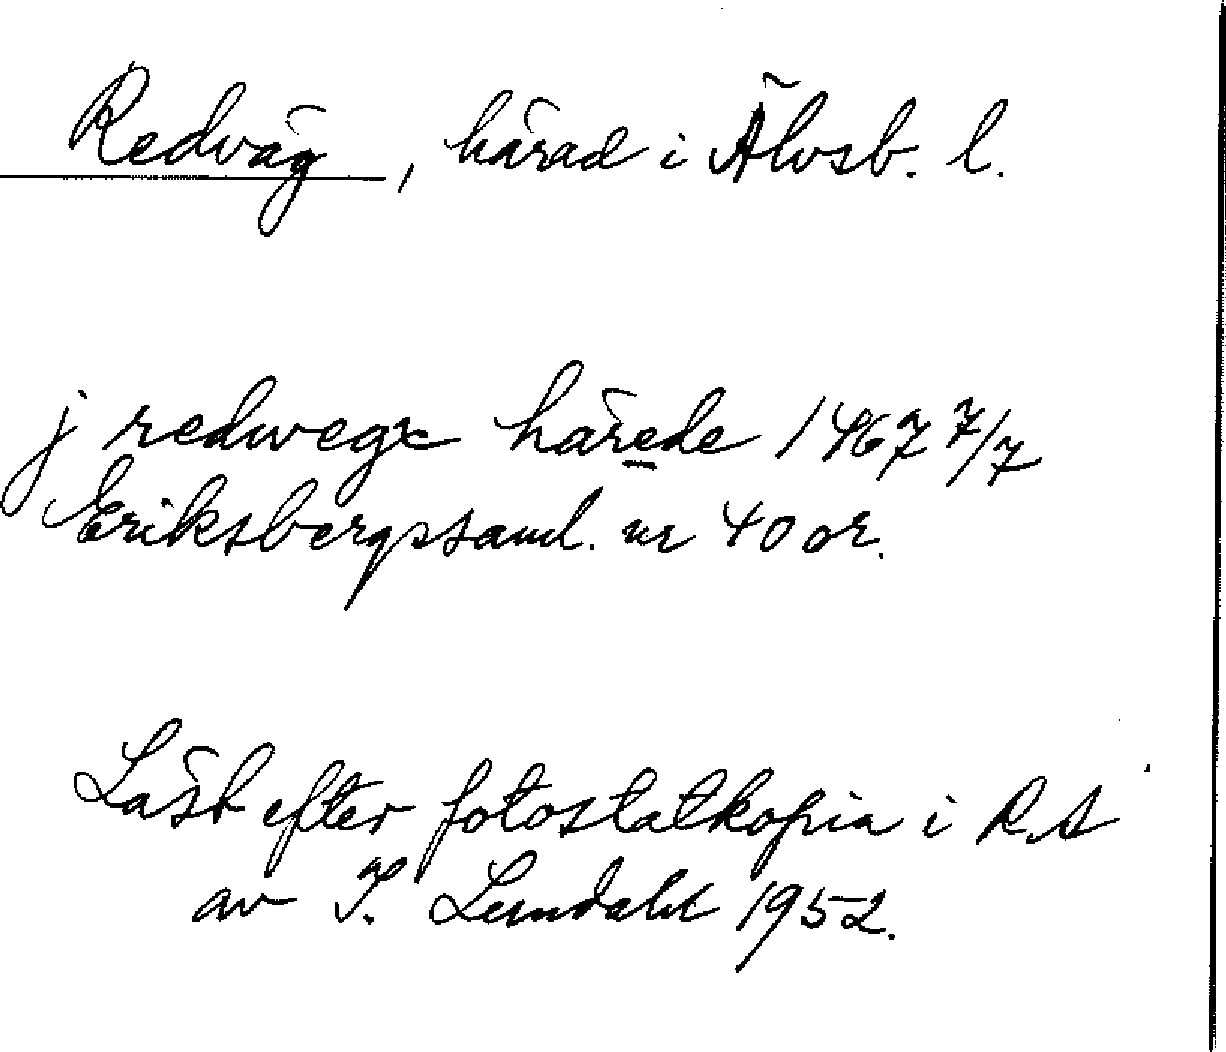 Redväg, härad i Älvsb. l.
j redwegx härede 1467 7/7
Eriksbergssaml. nr 40 or.
Läst efter fotostatkopia i RA
av I. Lundahl 1952.